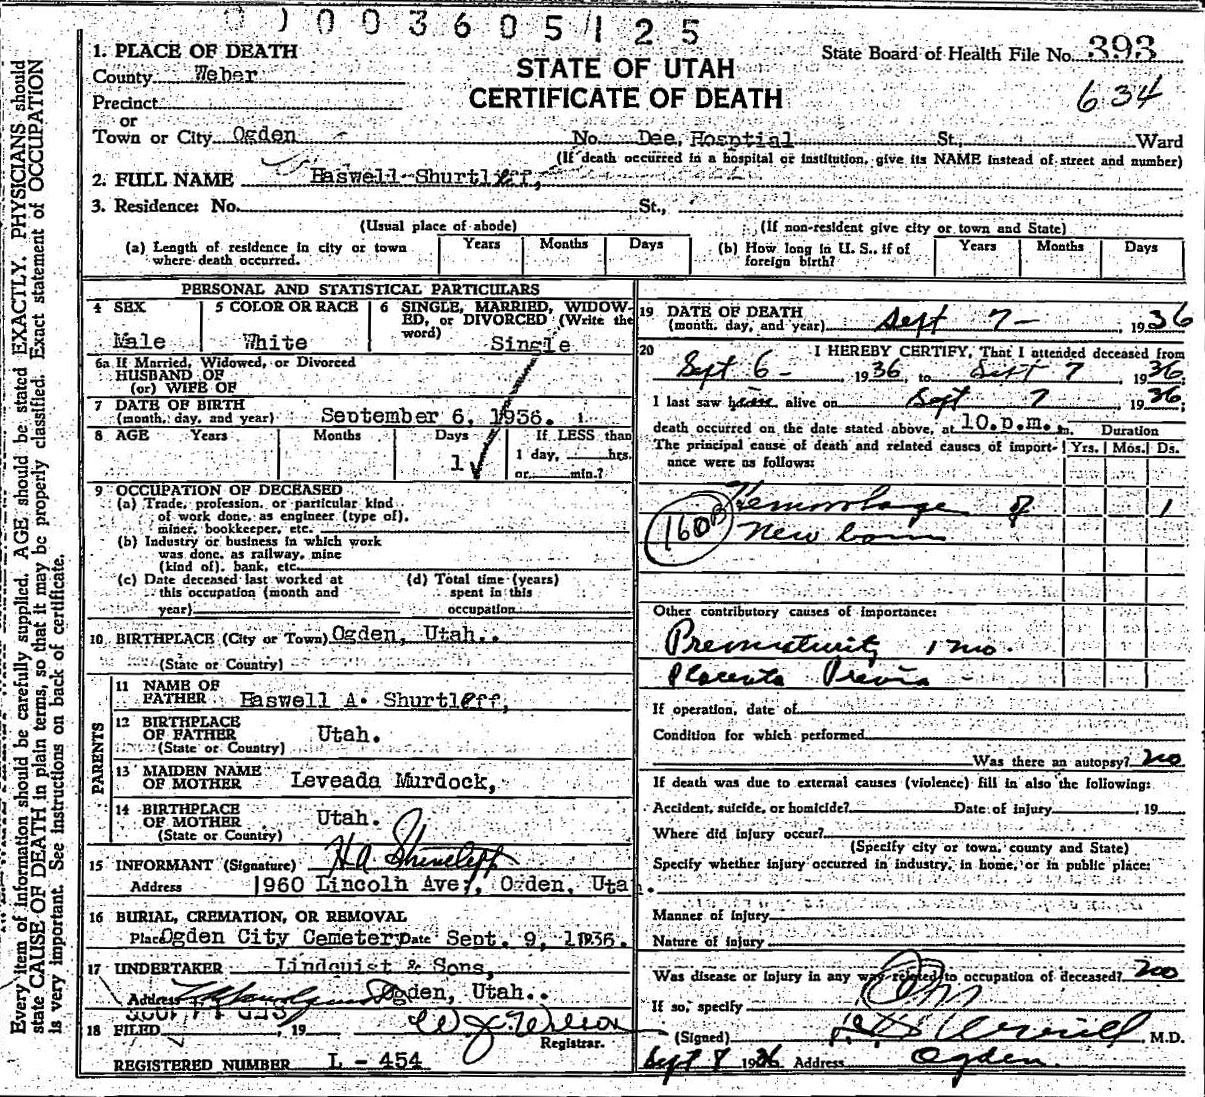 003605125
1. PLACE OF DEATH
County Weber
Precinct
or
Town or City Ogden
STATE OF UTAH
CERTIFICATE OF DEATH
State Board of Health File No. 393
634
No. Dee, Hosptial St., Ward
(If death occurred in a hospital or institution, give its NAME instead of street and number)
2. FULL NAME Haswell Shurtleff,
3. Residence: No. St.,
(Usual place of abode) (If non-resident give city or town and State)
(a) Length of residence in city or town where death occurred. Years Months Days
(b) How long in U. S., if of foreign birth? Years Months Days
PERSONAL AND STATISTICAL PARTICULARS
4 SEX
Male
5 COLOR OR RACE
White
6 SINGLE, MARRIED, WIDOW-
ED, or DIVORCED (Write the
word)
Single
6a If Married, Widowed, or Divorced
HUSBAND OF
(or) WIFE OF
7 DATE OF BIRTH
(month, day, and year) September 6, 1936.
8 AGE Years Months Days If LESS than
1 1 day, hrs.
or min.?
9 OCCUPATION OF DECEASED
(a) Trade, profession, or particular kind
of work done, as engineer (type of),
miner, bookkeeper, etc.
(b) Industry or business in which work
was done, as railway, mine
(kind of), bank, etc.
(c) Date deceased last worked at
this occupation (month and
year)
(d) Total time (years)
spent in this
occupation
10 BIRTHPLACE (City or Town) Ogden, Utah..
(State or Country)
PARENTS
11 NAME OF
FATHER Haswell A. Shurtleff,
12 BIRTHPLACE
OF FATHER Utah.
(State or Country)
13 MAIDEN NAME
OF MOTHER Leveada Murdock,
14 BIRTHPLACE
OF MOTHER Utah.
(State or Country)
15 INFORMANT (Signature) H A Shurtleff
Address 1960 Lincoln Ave, Ogden, Utah.
16 BURIAL, CREMATION, OR REMOVAL
Place Ogden City Cemetery Date Sept. 9, 1936.
17 UNDERTAKER Lindquist & Sons,
Address Ogden, Utah..
18 FILED , 19 W J Wilson
Registrar.
REGISTERED NUMBER L - 454
19 DATE OF DEATH
(month, day, and year) Sept 7- , 1936
20 I HEREBY CERTIFY, That I attended deceased from
Sept 6- 1936, to Sept 7 1936
I last saw him alive on Sept 7, 1936;
death occurred on the date stated above, at 10.p.m. m. Duration
The principal cause of death and related causes of import- Yrs. Mos. Ds.
ance were as follows:
Hemorrhage of 1
160B New born
Other contributory causes of importance:
Prematurity 1 mo.
Placenta Previa -
If operation, date of
Condition for which performed
Was there an autopsy? no
If death was due to external causes (violence) fill in also the following:
Accident, suicide, or homicide? Date of injury 19
Where did injury occur?
(Specify city or town, county and State)
Specify whether injury occurred in industry, in home, or in public place:
Manner of injury
Nature of injury
Was disease or injury in any way related to occupation of deceased? no
If so, specify
(Signed) M.D.
Sept 8 1936 Address Ogden.
Every item of information should be carefully supplied. AGE should be stated EXACTLY. PHYSICIANS should
state CAUSE OF DEATH in plain terms, so that it may be properly classified. Exact statement of OCCUPATION
is very important. See instructions on back of certificate.